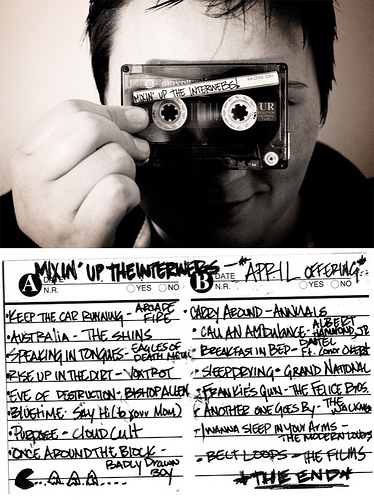 MIXIN' UP THE INTERWEBS!
UR
MIXIN' UP THE INTERWEBS - *APRIL OFFERING*
A DATE
N.R. YES NO
B DATE
N.R. YES NO
•KEEP THE CAR RUNNING - ARCADE FIRE
•AUSTRALIA - THE SHINS
•SPEAKING IN TONGUES - EAGLES OF DEATH METAL
•RISE UP IN THE DIRT - VOXTROT
•EVE OF DESTRUCTION - BISHOP ALLEN
•BLUSTIME - SAY HI (to your MOM)
•PURPOSE - CLOUD CULT
•ONCE AROUND THE BLOCK - BADLY DRAWN BOY
•CARRY AROUND - ANNUALS
•CALL AN AMBULANCE - ALBERT HAMMOND, JR
•BREAKFAST IN BED - DANIEL ft. CONOR OBERST
•SLEEPDRYING - GRAND NATIONAL
•FRANKIE'S GUN - THE FELICE BROS
•ANOTHER ONE GOES BY - THE WALKMEN
•I WANNA SLEEP IN YOUR ARMS - THE MODERN LOVERS
•BELT LOOPS - THE FILMS
*THE END*